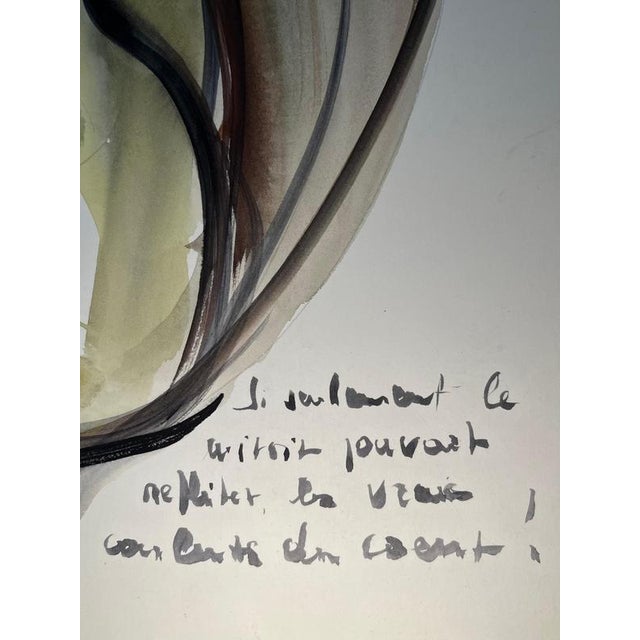 Si seulement le
miroir pouvait
refléter les vraies
couleurs du coeur !